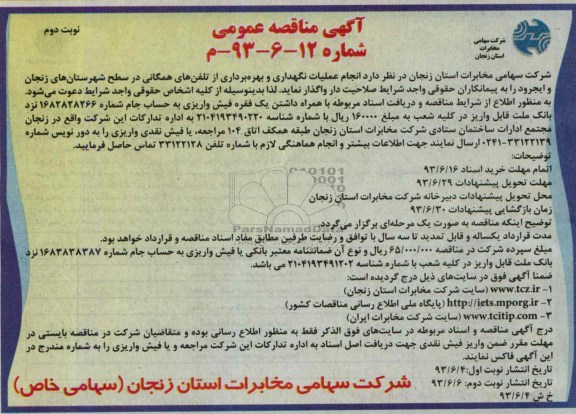 آگهی مناقصه عمومی
شماره ۱۲-۶-۹۳-م
نوبت دوم
شرکت سهامی
مخابرات
استان زنجان
شرکت سهامی مخابرات استان زنجان در نظر دارد انجام عملیات نگهداری و بهره‌برداری از تلفن‌های همگانی در سطح شهرستان‌های زنجان
و ایجرود را به پیمانکاران حقوقی واجد شرایط صلاحیت دار واگذار نماید. لذا بدینوسیله از کلیه اشخاص حقوقی واجد شرایط دعوت می‌شود.
به منظور اطلاع از شرایط مناقصه و دریافت اسناد مربوطه با همراه داشتن یک فقره فیش واریزی به حساب جام شماره ۱۶۸۲۸۲۸۲۶۶ نزد
بانک ملت قابل واریز در کلیه شعب به مبلغ ۱۶۰۰۰۰ ریال با شماره شناسه ۲۱۰۴۱۹۳۴۹۰۲۲۰ به اداره تدارکات این شرکت واقع در زنجان
مجتمع ادارات ساختمان ستادی شرکت مخابرات استان زنجان طبقه همکف اتاق ۱۰۴ مراجعه، یا فیش نقدی واریزی را به دور نویس شماره
۳۳۱۲۲۱۳۹-۰۲۴۱ ارسال نمایند جهت اطلاعات بیشتر و انجام هماهنگی لازم با شماره تلفن ۳۳۱۲۲۱۲۸ تماس حاصل فرمایید.
توضیحات:
اتمام مهلت خرید اسناد ۹۳/۶/۱۶
مهلت تحویل پیشنهادات ۹۳/۶/۲۹
محل تحویل پیشنهادات دبیرخانه شرکت مخابرات استان زنجان
زمان بازگشایی پیشنهادات ۹۳/۶/۳۰
توضیح اینکه مناقصه به صورت یک مرحله‌ای برگزار می‌گردد.
مدت قرارداد یکساله و قابل تمدید تا سه سال با توافق و رضایت طرفین مطابق مفاد اسناد مناقصه و قرارداد خواهد بود.
مبلغ سپرده شرکت در مناقصه ۶۵/۰۰۰/۰۰۰ ریال و نوع آن ضمانتنامه معتبر بانکی یا فیش واریزی به حساب جام شماره ۱۶۸۳۸۳۸۳۸۷ نزد
بانک ملت قابل واریز در کلیه شعب با شماره شناسه ۲۱۰۴۱۹۳۴۹۱۲۰۲ می باشد.
ضمنا آگهی فوق در سایت‌های ذیل درج گردیده است:
۱- www.tcz.ir (سایت شرکت مخابرات استان زنجان)
۲- http://iets.mporg.ir (پایگاه ملی اطلاع رسانی مناقصات کشور)
۳- www.tcitip.com (سایت شرکت مخابرات ایران)
درج آگهی مناقصه و اسناد مربوطه در سایت‌های فوق الذکر فقط به منظور اطلاع رسانی بوده و متقاضیان شرکت در مناقصه بایستی در
مهلت مقرر ضمن واریز فیش نقدی جهت دریافت اصل اسناد به اداره تدارکات این شرکت مراجعه و یا فیش واریزی را به شماره مندرج در
این آگهی فاکس نمایند.
تاریخ انتشار نوبت اول: ۹۳/۶/۴
تاریخ انتشار نوبت دوم: ۹۳/۶/۶
خ ش: ۹۳/۶/۴
شرکت سهامی مخابرات استان زنجان (سهامی خاص)